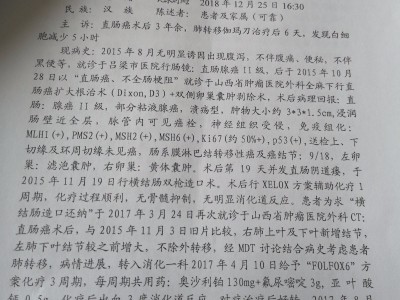 2018 年 12 月 25 日 16:30
民族: 汉族 陈述者: 患者及家属(可靠)
主诉: 直肠癌术后 3 年余, 肺转移伽玛刀治疗后 6 天, 发现白细
胞减少 5 小时
现病史: 2015 年 8 月无明显诱因出现腹泻, 不伴腹痛、便秘, 不伴
黑便等, 就诊于吕梁市医院行肠镜: 直肠腺癌 11 级, 后于 2015 年 10 月
28 日以“直肠癌、不全肠梗阻”就诊于山西省肿瘤医院外科全麻下行直
肠癌扩大根治术(Dixon,D3)+双侧卵巢囊肿剥除术, 术后病理回报: 直
肠: 腺癌 11 级, 部分粘液腺癌, 溃疡型, 肿物大小约 3*3*1.5cm,浸润
肠壁近全层, 脉管内可见癌栓, 神经组织受侵, 免疫组化:
MLH1(+),PMS2(+),MSH2(+),MSH6(+),Ki67(约 50%),p53(+),送检上、下
切缘及环周切缘未见癌, 肠系膜淋巴结转移性癌及癌结节: 9/18, 左卵
巢: 滤泡囊肿, 右卵巢: 黄体囊肿。术后第 19 天并发直肠阴道瘘, 于
2015 年 11 月 19 日行横结肠双枪造口术。术后行 XELOX 方案辅助化疗 1
周期, 化疗过程顺利, 无骨髓抑制, 无明显消化道反应。患者为求“横
结肠造口还纳”于 2017 年 3 月 24 日再次就诊于山西省肿瘤医院外科 CT:
直肠癌术后, 与 2015 年 11 月 3 日旧片比较, 右肺上叶及下叶新增结节,
左肺下叶结节较之前增大, 不除外转移, 经 MDT 讨论结合病史考虑患者
肺转移, 病情进展, 转入消化一科 2017 年 4 月 10 日给予“FOLFOX6”方
案化疗 3 周期, 每周期共用药: 奥沙利铂 130mg+氟尿嘧啶 3g, 亚叶酸